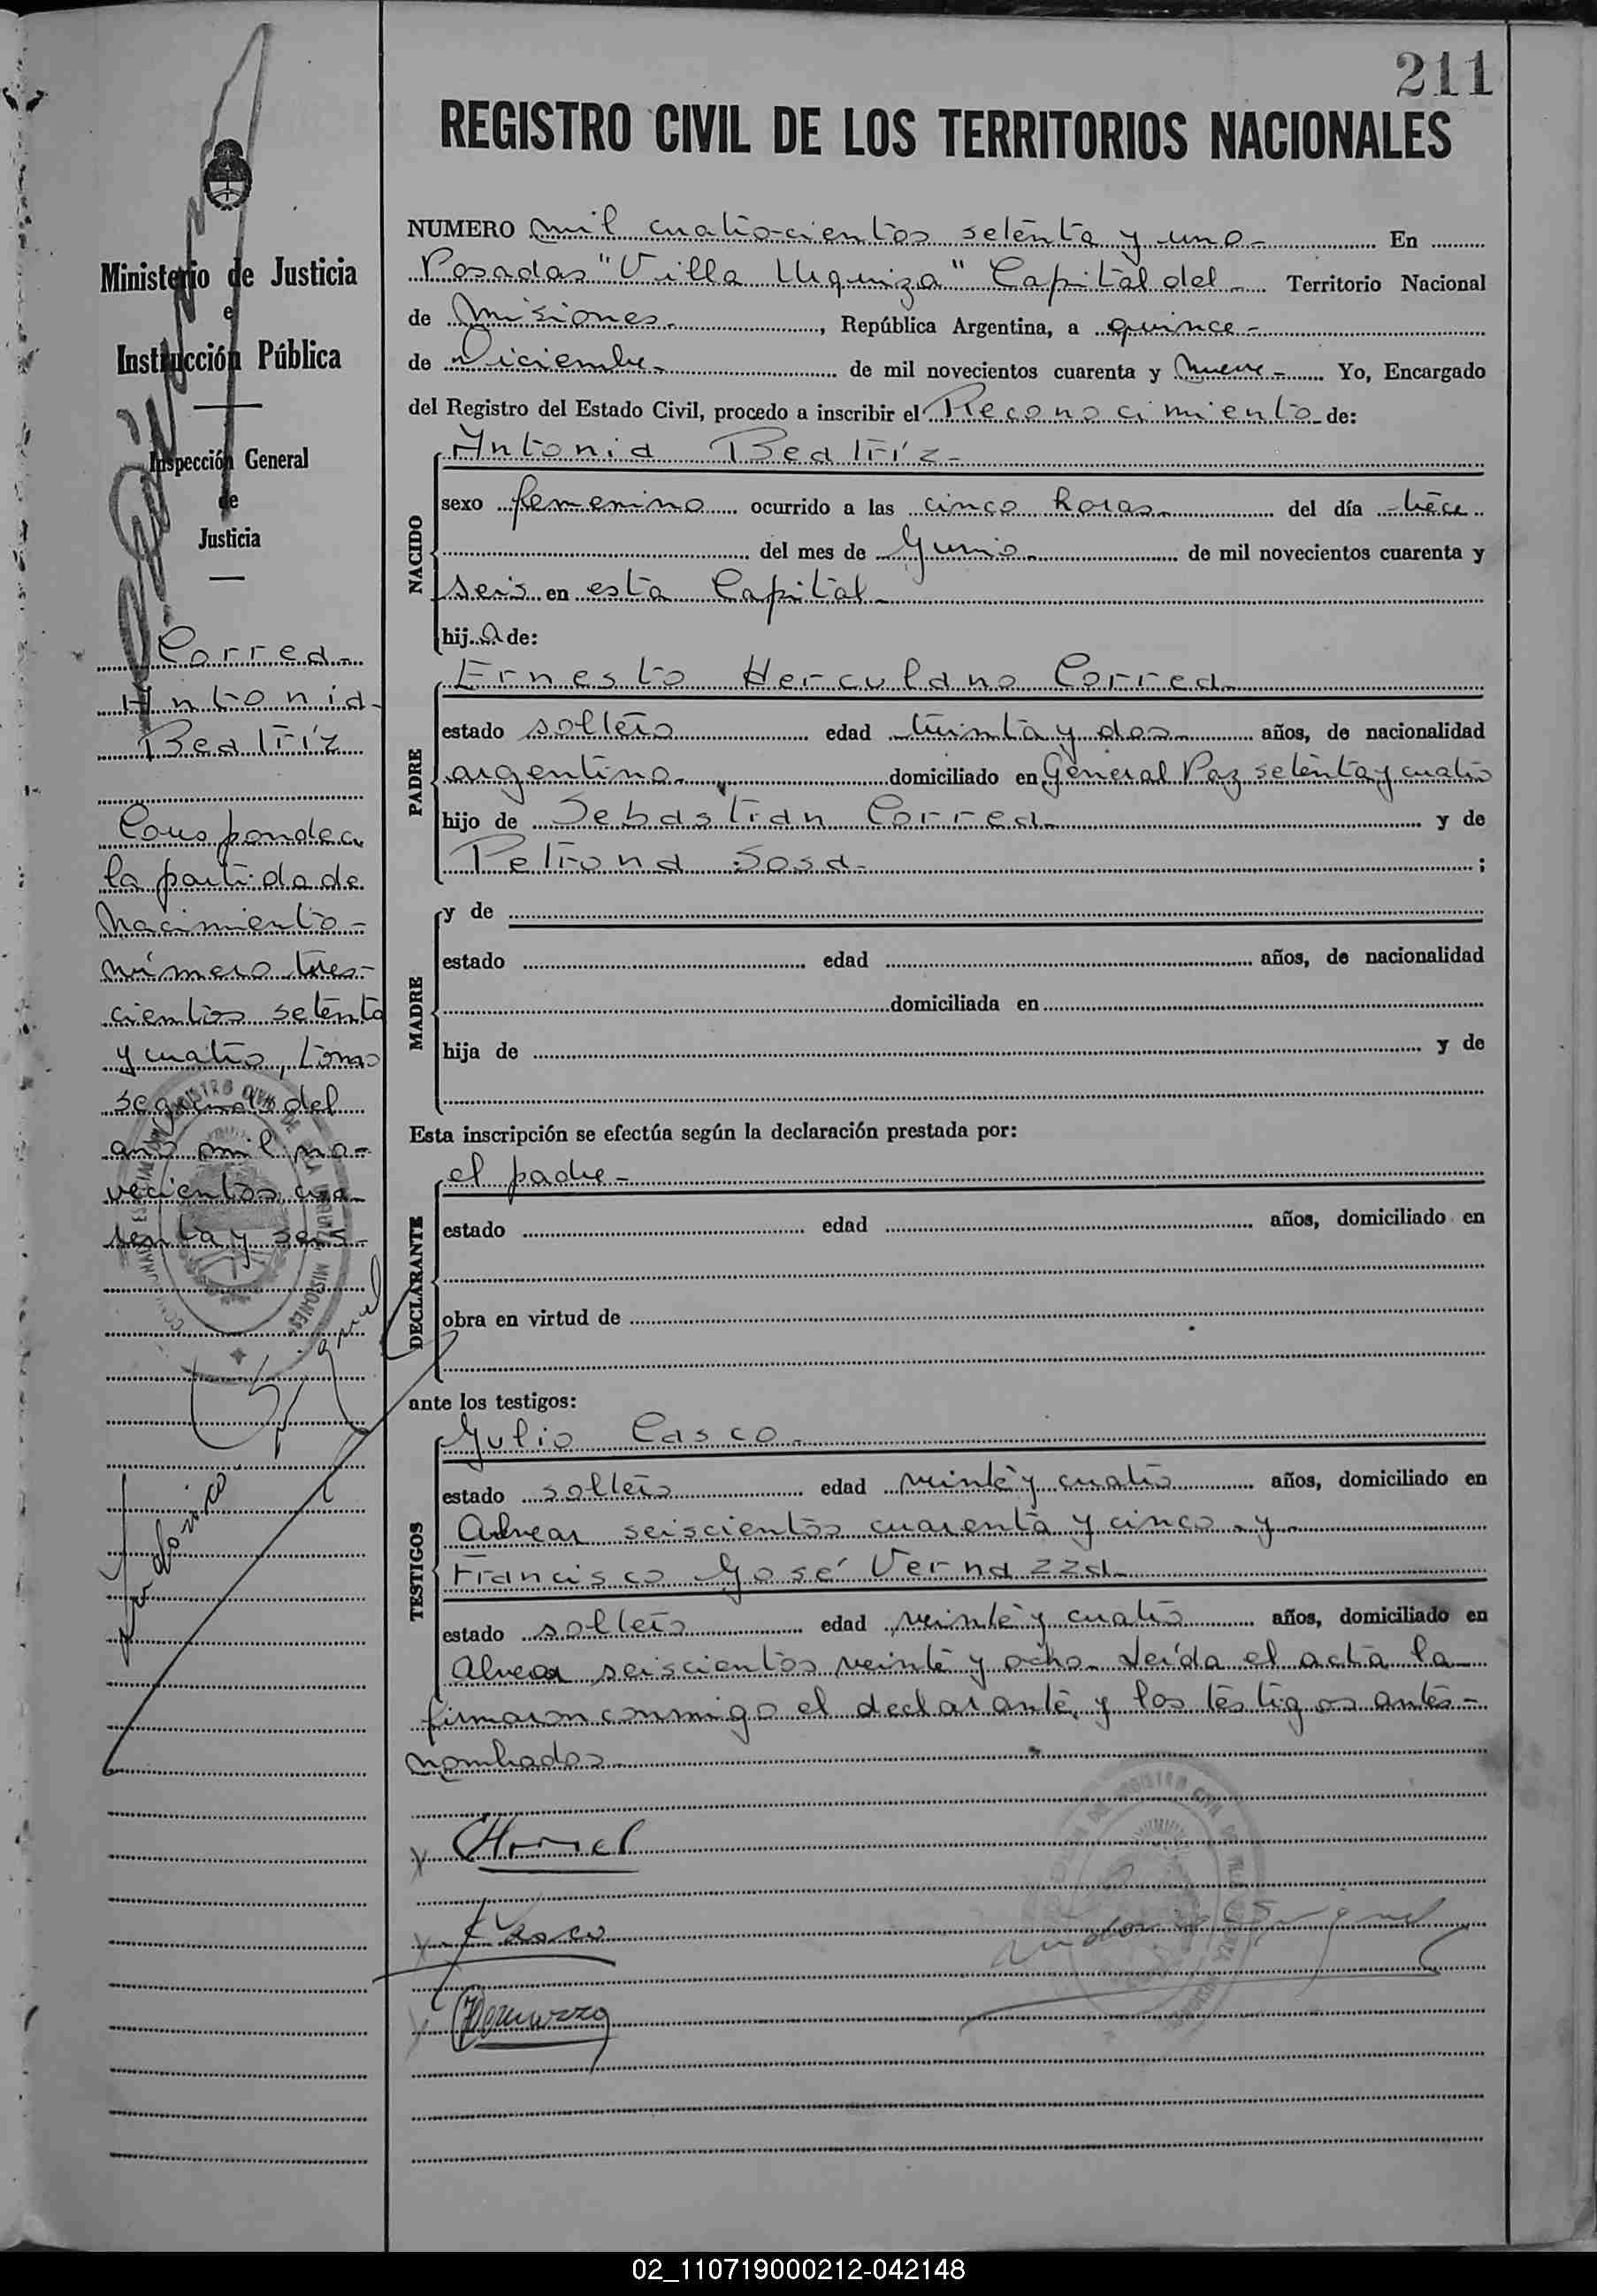 211
REGISTRO CIVIL DE LOS TERRITORIOS NACIONALES
Ministerio de Justicia
e
Instrucción Pública
Inspección General
de
Justicia
Correa-
Antonia-
Beatríz
Corresponde a
la partida de
Nacimiento-
número tres-
cientos setenta
y cuatro, tomo
segundo del
año mil no-
vecientos cua-
renta y seis-
NUMERO mil cuatrocientos setenta y uno- En
Posadas "Villa Urquiza" Capital del Territorio Nacional
de Misiones- , República Argentina, a quince-
de Diciembre- de mil novecientos cuarenta y nueve- Yo, Encargado
del Registro del Estado Civil, procedo a inscribir el Reconocimiento de:
NACIDO
Antonia Beatríz-
sexo femenino ocurrido a las cinco horas- del día trece
del mes de Junio- de mil novecientos cuarenta y
seis en esta Capital-
hija de:
PADRE
Ernesto Herculano Correa-
estado soltero edad treinta y dos- años, de nacionalidad
argentino- domiciliado en General Paz setenta y cuatro
hijo de Sebastian Correa- y de
Petrona Sosa- ;
MADRE
y de
estado edad años, de nacionalidad
domiciliada en
hija de y de
Esta inscripción se efectúa según la declaración prestada por:
DECLARANTE
el padre-
estado edad años, domiciliado en
obra en virtud de
ante los testigos:
TESTIGOS
Julio Casco-
estado soltero edad veinte y cuatro años, domiciliado en
Alvear seiscientos cuarenta y cinco- y-
Francisco José Vernazza-
estado soltero edad veinte y cuatro años, domiciliado en
Alvear seiscientos veinte y ocho- Leída el acta la
firmaron conmigo el declarante, y los testigos antes-
nombrados-
Casco
02_110719000212-042148